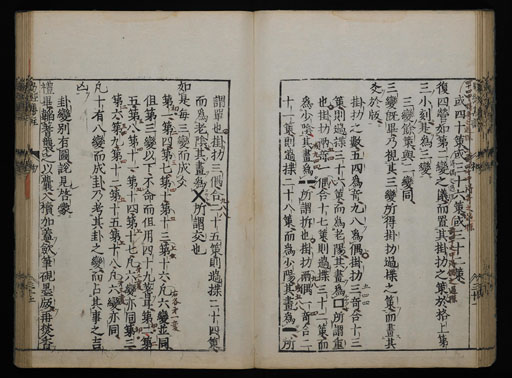 或四十策或三十六策或三十二策
復四營如第二變之儀而置其掛扐之策於格上第
三小刻是為三變
三變餘策與二變同
三變既畢乃視其三變所得掛扐過揲之策而畫其
爻於版
掛扐之數五四為奇九八為偶掛扐三奇合十三
策則過揲三十六策而為老陽其畫為囗所謂重
也掛扐兩奇一偶合十七策則過揲三十二策而
為少陰其畫為⚋所謂拆也掛扐兩偶一奇合二
十一策則過揲二十八策而為少陽其畫為⚊所
謂單也掛扐三偶合二十五策則過揲二十四策
而為老陰其畫為乂所謂交也
如是每三變而成爻
第一第四第七第十第十三第十六凡六變並同
但第三變以下不命而但用四十九蓍耳第二第
五第八第十一第十四第十七凡六變亦同第三
第六第九第十二第十五第十八凡六變亦同
凡十有八變而成卦乃考其卦之變而占其事之吉
凶
卦變別有圖說見啓蒙
禮畢韜蓍襲之以囊入櫝加蓋斂筆硯墨版再焚香